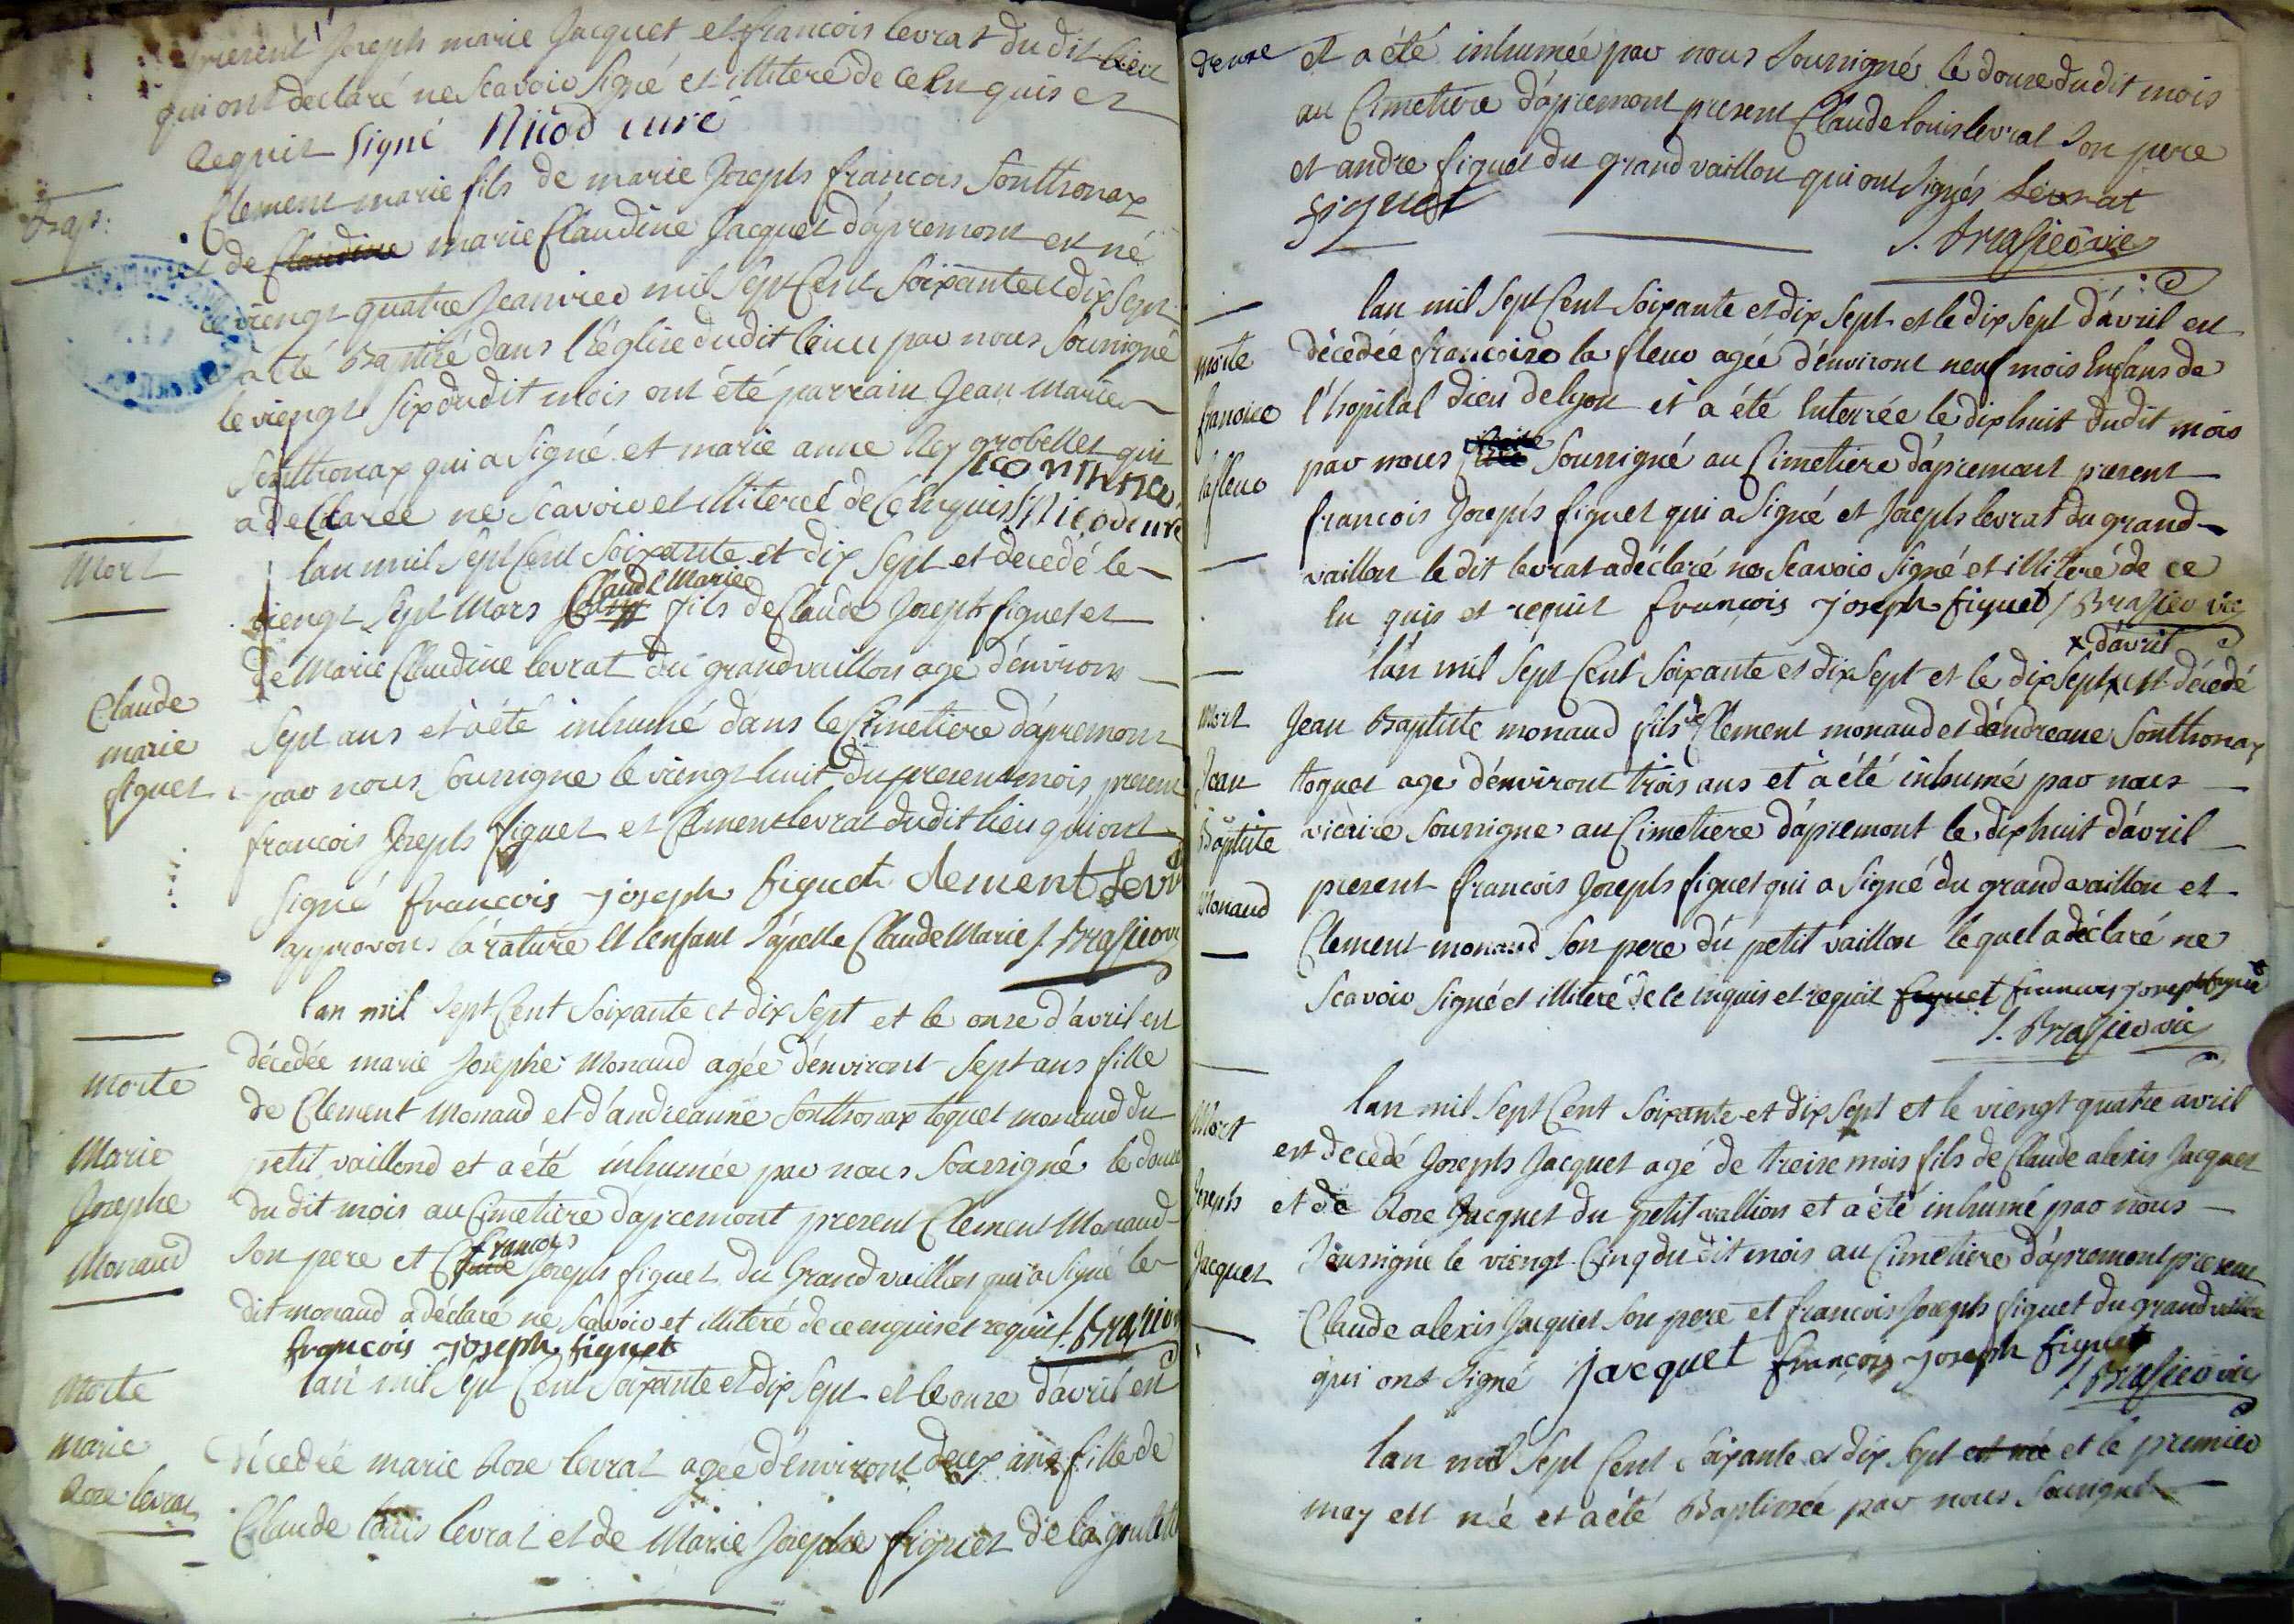 present Joseph marie Jacquet et francois levrat du dit lieu
qui ont declaré ne scavoir signé et illiteré de ce enquis et
requit signé Nicod curé
Bapt:
Clement marie fils de marie Joseph francois Sonthonax
et de Claudine marie Claudine Jacquet d'apremont est né
le viengt quatre Jeanvier mil sept Cent Soixante et dix sept
a été Baptizé dans l'église dudit lieu par nous Sousigné
le viengt six dudit mois ont été parrain Jean Marie
Sonthonax qui a signé et marie anne Rey grobellet qui
a declarée ne scavoir et illiteree de ce enquis Nicod curé
Mort
lan mil sept Cent soixante et dix sept et decedé le
Claude Marie
viengt sept Mars fils de Claude Joseph figuet et
de Marie Claudine levrat du grandvaillon age d'environs
Claude
marie
figuet
sept ans et a été inhumé dans le Cimetiere d'apremont
par nous soussigne le viengt huit du present mois present
francois Joseph figuet et Clement levrat dudit lieu qui ont
signé francois joseph figuet clement Levra
approvons la rature et lenfant s'apelle Claude Marie J. Brasier vic
lan mil sept Cent Soixante et dix sept et le onze d'avril est
Morte
Marie
Josephe
Monaud
décedée marie Josephe Monaud agée d'environt sept ans fille
de Clement Monaud et d'andreanne Sonthonax toquet monaud du
petit vaillond et a été inhumée par nous soussigné le douze
du dit mois au Cimetiere d'apremont present Clement Monaud
francois
son pere et Claude Joseph figuet du Grand vaillon qui a signé le
dit monaud a déclaré ne scavoir et illiteré de ce enquis et requit J. Brasier
francois joseph figuet
Morte
marie
Roze levrat
lan mil sept Cent Soixante et dix sept et le onze d'avril est
décedée marie Roze levrat agée d'environt deux ans fille de
Claude louis levrat et de Marie Josephe figuet de la goulette
d'envie et a été inhumée par nous soussigné le douze dudit mois
au Cimetiere d'apremont present Claude louis levrat son pere
et andre figuet du grand vaillon qui ont signés levrat
figuet
J. Brasier vic
lan mil sept Cent Soixante et dix sept et le dix sept d'avril est
morte
francoise
lafleur
décedée francoise la fleur agée d'environt neuf mois Enfans de
l'hopital dieu de lyon et a été Enterrée le dix huit dudit mois
par nous soussigné au Cimetiere d'apremont present
francois Joseph figuet qui a signé et Joseph levrat du grand
vaillon le dit levrat a déclaré ne scavoir signé et illiteré de ce
En quis et requit francois joseph figuet J Brasier vic
x d'avril
lan mil sept Cent Soixante et dix sept et le dix sept x est décedé
Mort
Jean
Baptiste
Monaud
Jean Baptiste monaud fils de Clement monaud et d'andreane Sonthonax
toquet age d'environt trois ans et a été inhumé par nous
vicaire soussigne au Cimetiere d'apremont le dix huit d'avril
present francois Joseph figuet qui a signé du grand vaillon et
Clement monaud son pere du petit vaillon le quel a déclaré ne
scavoir signé et illiteré de ce enquis et requit figuet francois joseph figuet
J. Brasier vic
lan mil sept Cent soixante et dix sept et le viengt quatre avril
Mort
Joseph
Jacquet
est decedé Joseph Jacquet agé de treize mois fils de Claude alexis Jacquet
et de Roze Jacquet du petit vallion et a été inhumé par nous
soussigne le viengt Cinq du dit mois au Cimetiere d'apremont present
Claude alexis Jacquet son pere et francois Joseph figuet du grand vaillon
qui ont signé jacquet francois joseph figuet
J Brasier vic
lan mil sept Cent Soixante et dix sept est né et le premier
may est né et a été Baptissée par nous sousigné